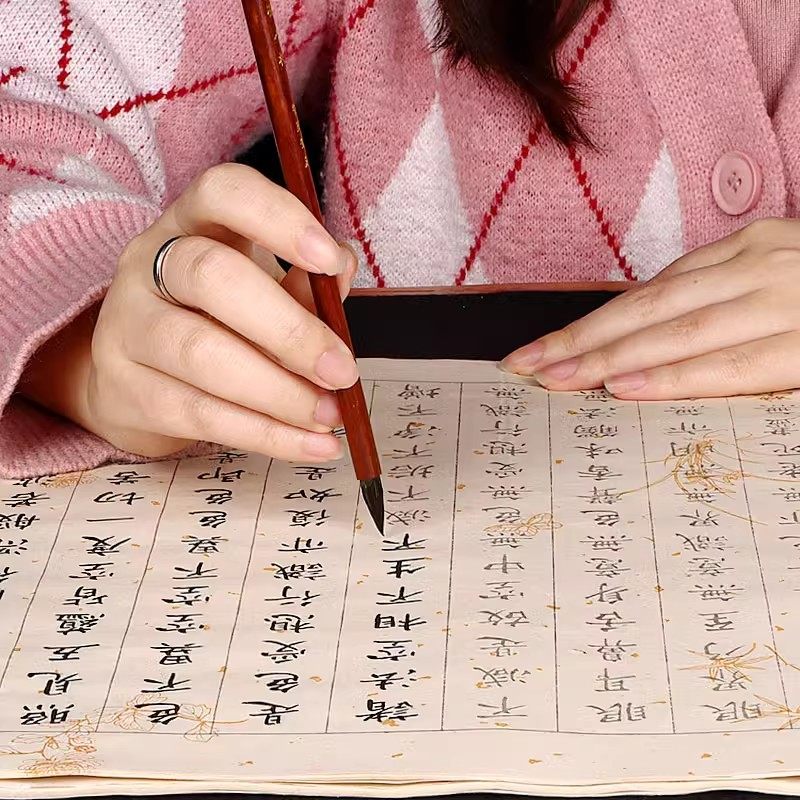 深般若
照見五蘊皆空度一切苦
色不異空空不異色色即是
是色受想行識亦復如是
諸法空相不生不滅不垢不淨不增
不減是故空中無色無受想行識
眼耳鼻舌身意無色聲香味觸法
眼界乃至無意識界無明亦